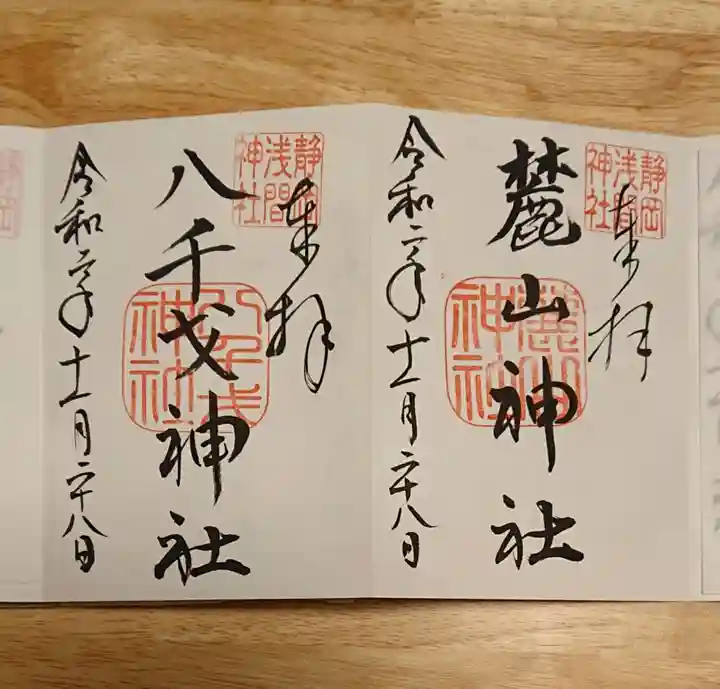 奉拝
静岡
浅間
神社
麓山神社
麓山
神社
令和二年十一月二十八日
奉拝
静岡
浅間
神社
八千戈神社
八千戈
神社
令和二年十一月二十八日
静岡